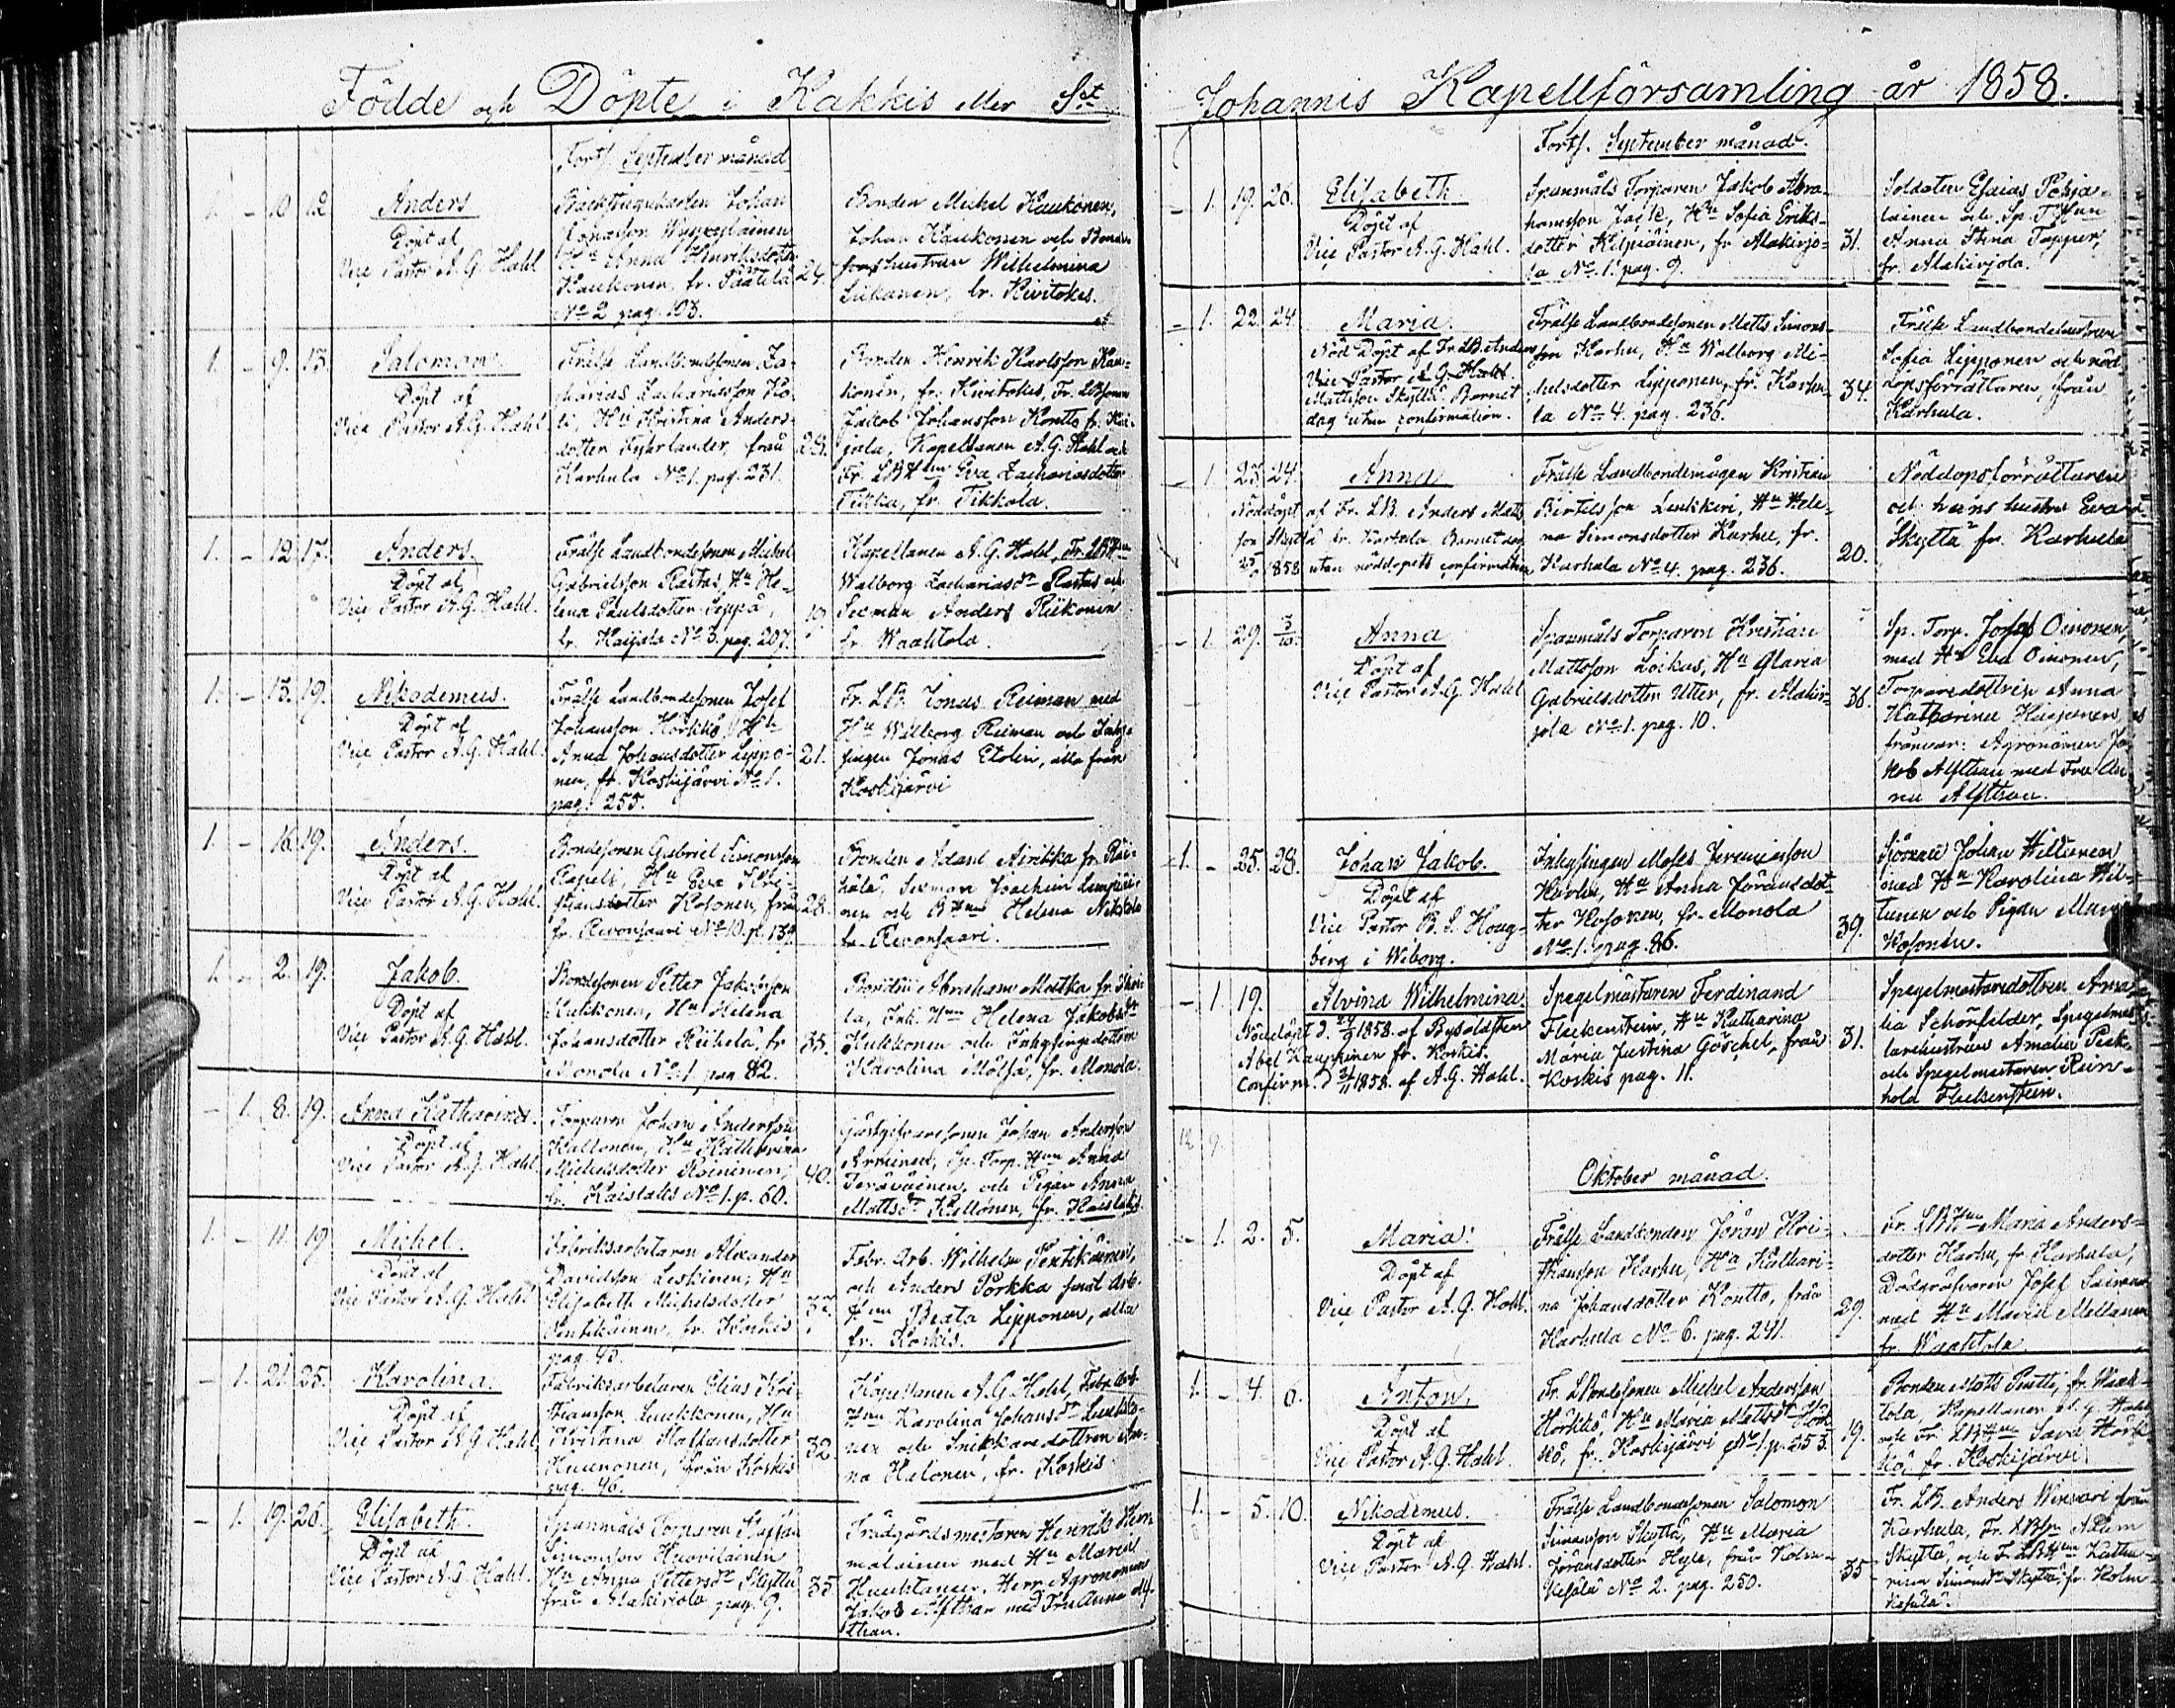 Födde och Döpte i Kakkis eller St
Forts. September månad
1. - 10 12 Anders
Döpt af
Vice Pastor A. G. Hahl
Johan
Anna Henriksdotter
Kaukonen, fr. Säätelä 24.
No 2 pag. 103.
Bonden Michel Kaukonen,
Johan Kaukonen och
Wilhelmina
fr. Kivitokes.
1. - 9. 13. Salomon
Döpt af
Vice Pastor A. G. Hahl
Frälse Landbondesonen Za-
charias Zachariasson
Hu Kristina Anders-
dotter från 28.
Karhula No 1. pag. 231.
Bonden Henrik Karlsson Kau-
konen, fr. Kivitokes, Fr. LBsonen
Jakob Johansson Kontto fr. Kai-
jala, Kapellanen A. G. Hahl och
Fr. LB Hun Eva Zachariasdotter
Tikka, fr. Tikkala.
1. - 12 17. Anders.
Döpt af
Vice Pastor A. G. Hahl.
Frälse Landbondesonen Michel
Gabrielsson Rastas, Hu He-
lena Paulsdotter Seppä,
fr. Kaijala No 3. pag. 207.
Kapellanen A. G. Hahl, Fr. LBHun
Walborg Zachariasdr Rastas och
Sexman Anders Riikonen
fr. Waahtola.
1. - 13. 19. Nikodemus.
Döpt af
Vice Pastor A. G. Hahl.
Frälse Landbondesonen Josef
Johansson Hörkkö, Hu
Anna Johansdotter Leppo- 21.
nen, fr. Koskijärvi No 1.
pag. 255.
Fr. LB. Jonas Reiman med
Hu Walborg Reiman och Inhy-
singen Jonas Etolin, alla från
Koskijärvi
1. - 16. 19. Anders.
Döpt af
Vice Pastor A. G. Hahl.
Bondesonen Gabriel Simonsson
Rapeli, Hu Eva Kri-
stiansdotter Kosonen, från 28.
fr. Revonsaari No 10. p. 134.
Bonden Adam Airikka fr.
Sexman Joachim
och BHun Helena
fr. Revonsaari.
1. - 2. 19. Jakob.
Döpt af
Vice Pastor A. G. Hahl.
Bondesonen Petter Jakobsson
Kukkonen, Hu Helena
Johansdotter Riihelä, fr 35.
Monola No 1. pag. 82.
Bonden Abraham Matka fr.
la, Inh. Hun Helena Jakobsdr
Kukkonen och Inhysingedottren
Karolina Mölsä, fr. Monola.
- 1. 8. 19. Anna Katharina.
Döpt af
Vice Pastor A. G. Hahl.
Torparen Johan Andersson
Kallonen, Hu Katharina
Michelsdotter Roininen, 40.
fr. Kaislaks No 1. p. 60.
Gästgifvaresonen Johan Andersson
Arminen, Sp. Torp. Hun Anna
Terävainen, och Pigan Anna
Mattsdr Kallonen, fr. Kaislaks.
1. - 11. 19 Michel.
Döpt af
Vice Pastor A. G. Hahl
Fabriksarbetaren Alexander
Davidsson Leskinen, Hu
Elisabeth Michelsdotter
Pentikäinen, fr. Koskis
pag. 45.
Fabr. Arb. Wilhelm Pentikäinen,
och Anders Porkka samt Arb.
Hun Beata Lipponen, alla
fr. Koskis.
- 1. 21. 25. Karolina.
Döpt af
Vice Pastor A. G. Hahl
Fabriksarbetaren Elias Kri-
stiansson Luukkonen, Hu
Kristina Staffansdotter 32
Huunonen, från Koskis
pag. 46.
Kapellanen A. G. Hahl, Fabr. Arb.
Hun Karolina Johansdr Luukko-
nen och Snikkaredottren An-
na Halonen, fr. Koskis.
- 1. 19. 26. Elisabeth.
Döpt af
Vice Pastor A. G. Hahl.
Spanmåls Torparen Staffan
Simonsson Huovilainen
Hu Anna Pettersdr Skyttä 35
från Alakirjola pag. 9.
Trädgårdsmestaren Henrik
med Hu Maria
Herr Agronomen
Jakob Alfthan med Fru Anna Alf-
than.
Johannis Kapellförsamling år 1858.
Forts. September månad.
- 1. 19. 26. Elisabeth
Döpt af
Vice Pastor A. G. Hahl.
Spanmåls Torparen Jakob Abra-
hamsson Hu Sofia Eriks-
dotter Kilpiäinen, fr Alakirjo- 31.
la No 1. pag. 9.
Soldaten Esaias Pohja-
lainen och Sp. T. Hun
Anna Stina Tapper,
fr. Alakirjola.
- 1. 22. 24. Maria.
Nöd Döpt af Fr LB. Anders
Vice Pastor A. G. Hahl.
Mattsson Skyttä. Barnet
dog utan confirmation.
Frälse Landbondesonen Matts Simons-
son Karhu, Hu Walborg Mi-
chelsdotter Lipponen, fr. Karhu- 34.
la No 4. pag. 236.
Frälse Landbondehustrun
Sofia Lipponen och nöd-
döpsförrättaren, från
Karhula.
- 1. 23. 24. Anna
Nöddöpt af Fr. LB. Anders Matts-
son Skyttä fr. Karhula. Barnet dog
1858 utan nöddopets confirmation
Frälse Landbondemågen Kristian
Bertilsson Leukkeri, Hu Hele-
na Simonsdotter Karhu, fr. 20.
Karhula No 4. pag. 236.
Nöddopsförrättaren
och hans hustru Eva
Skyttä fr. Karhula
- 1. 29. 3/10. Anna
Döpt af
Vice Pastor A. G. Hahl
Spanmåls Torparen Kristian
Mattsson Loikas, Hu Maria
Gabrielsdotter Utter, fr. Alakir- 36.
jola No 1. pag. 10.
Sp. Torp. Josef Oinonen,
med Hu Eva Oinonen,
Torparedottren Anna
Katharina
frånvar: Agronomen Ja-
kob Alfthan med Fru An-
na Alfthan.
1. - 25. 28. Johan Jakob.
Döpt af
Vice Pastor B. S. Houg-
berg i Wiborg.
Inhysingen Moses Jeremiasson
Hu Anna Göransdot-
ter Kosonen, fr. Monola 39.
No 1. pag. 86.
Johan Wiltunen
med Hu Karolina Wil-
tunen och Pigan
Kosonen.
- 1. 19. Alvina Wilhelmina
Nöddöpt d. 1858. af Bysoldaten
Abel fr. Koskis.
Confirm. d 1858. af A. G. Hahl.
Spegelmästaren Ferdinand
Fleckenstein, Hu Katharina
Maria Justina Göschel, från 31.
Koskis pag. 11.
Spegelmästaredottren Ama-
lia Schönfelder, Spegelmäs-
tarehustrun Amalia
och Spegelmästaren Rein-
hold Fleckenstein.
12 9.
Oktober månad.
- 1. 2. 5. Maria.
Döpt af
Vice Pastor A. G. Hahl.
Frälse Landbonden Jöran Kri-
stiansson Karhu, Hu Kathari-
na Johansdotter Kontto, från 29.
Karhula No 6. pag. 241.
Fr. LBHun Maria Anders-
dotter Karhu, fr. Karhula,
Dödgräfvaren Josef
med Hu Maria
fr. Waahtola
1. - 4. 6. Anton.
Döpt af
Vice Pastor A. G. Hahl.
Fr. LBondesonen Michel Andersson
Hörkkö, Hu Maria Mattsdr Hörk-
kö, fr. Koskijärvi No 1. p. 253. 19.
Bonden Matts Pentti, fr. Waah-
tola, Kapellanen A. G. Hahl
och Fr. LBHun Sara Hörk-
kö, fr. Koskijärvi
1. - 5. 10. Nikodemus.
Döpt af
Vice Pastor A. G. Hahl.
Frälse Landbondesonen Salomon
Simonsson Skyttä, Hu Maria
Göransdotter från Kolm- 35
kesälä No 2. pag. 250.
Fr. LB. Anders från
Karhula, Fr. LBsn Adam
Skyttä, och Fr. LBHun Katha-
rina Simonsdr Skyttä, fr. Kolm-
kesälä.